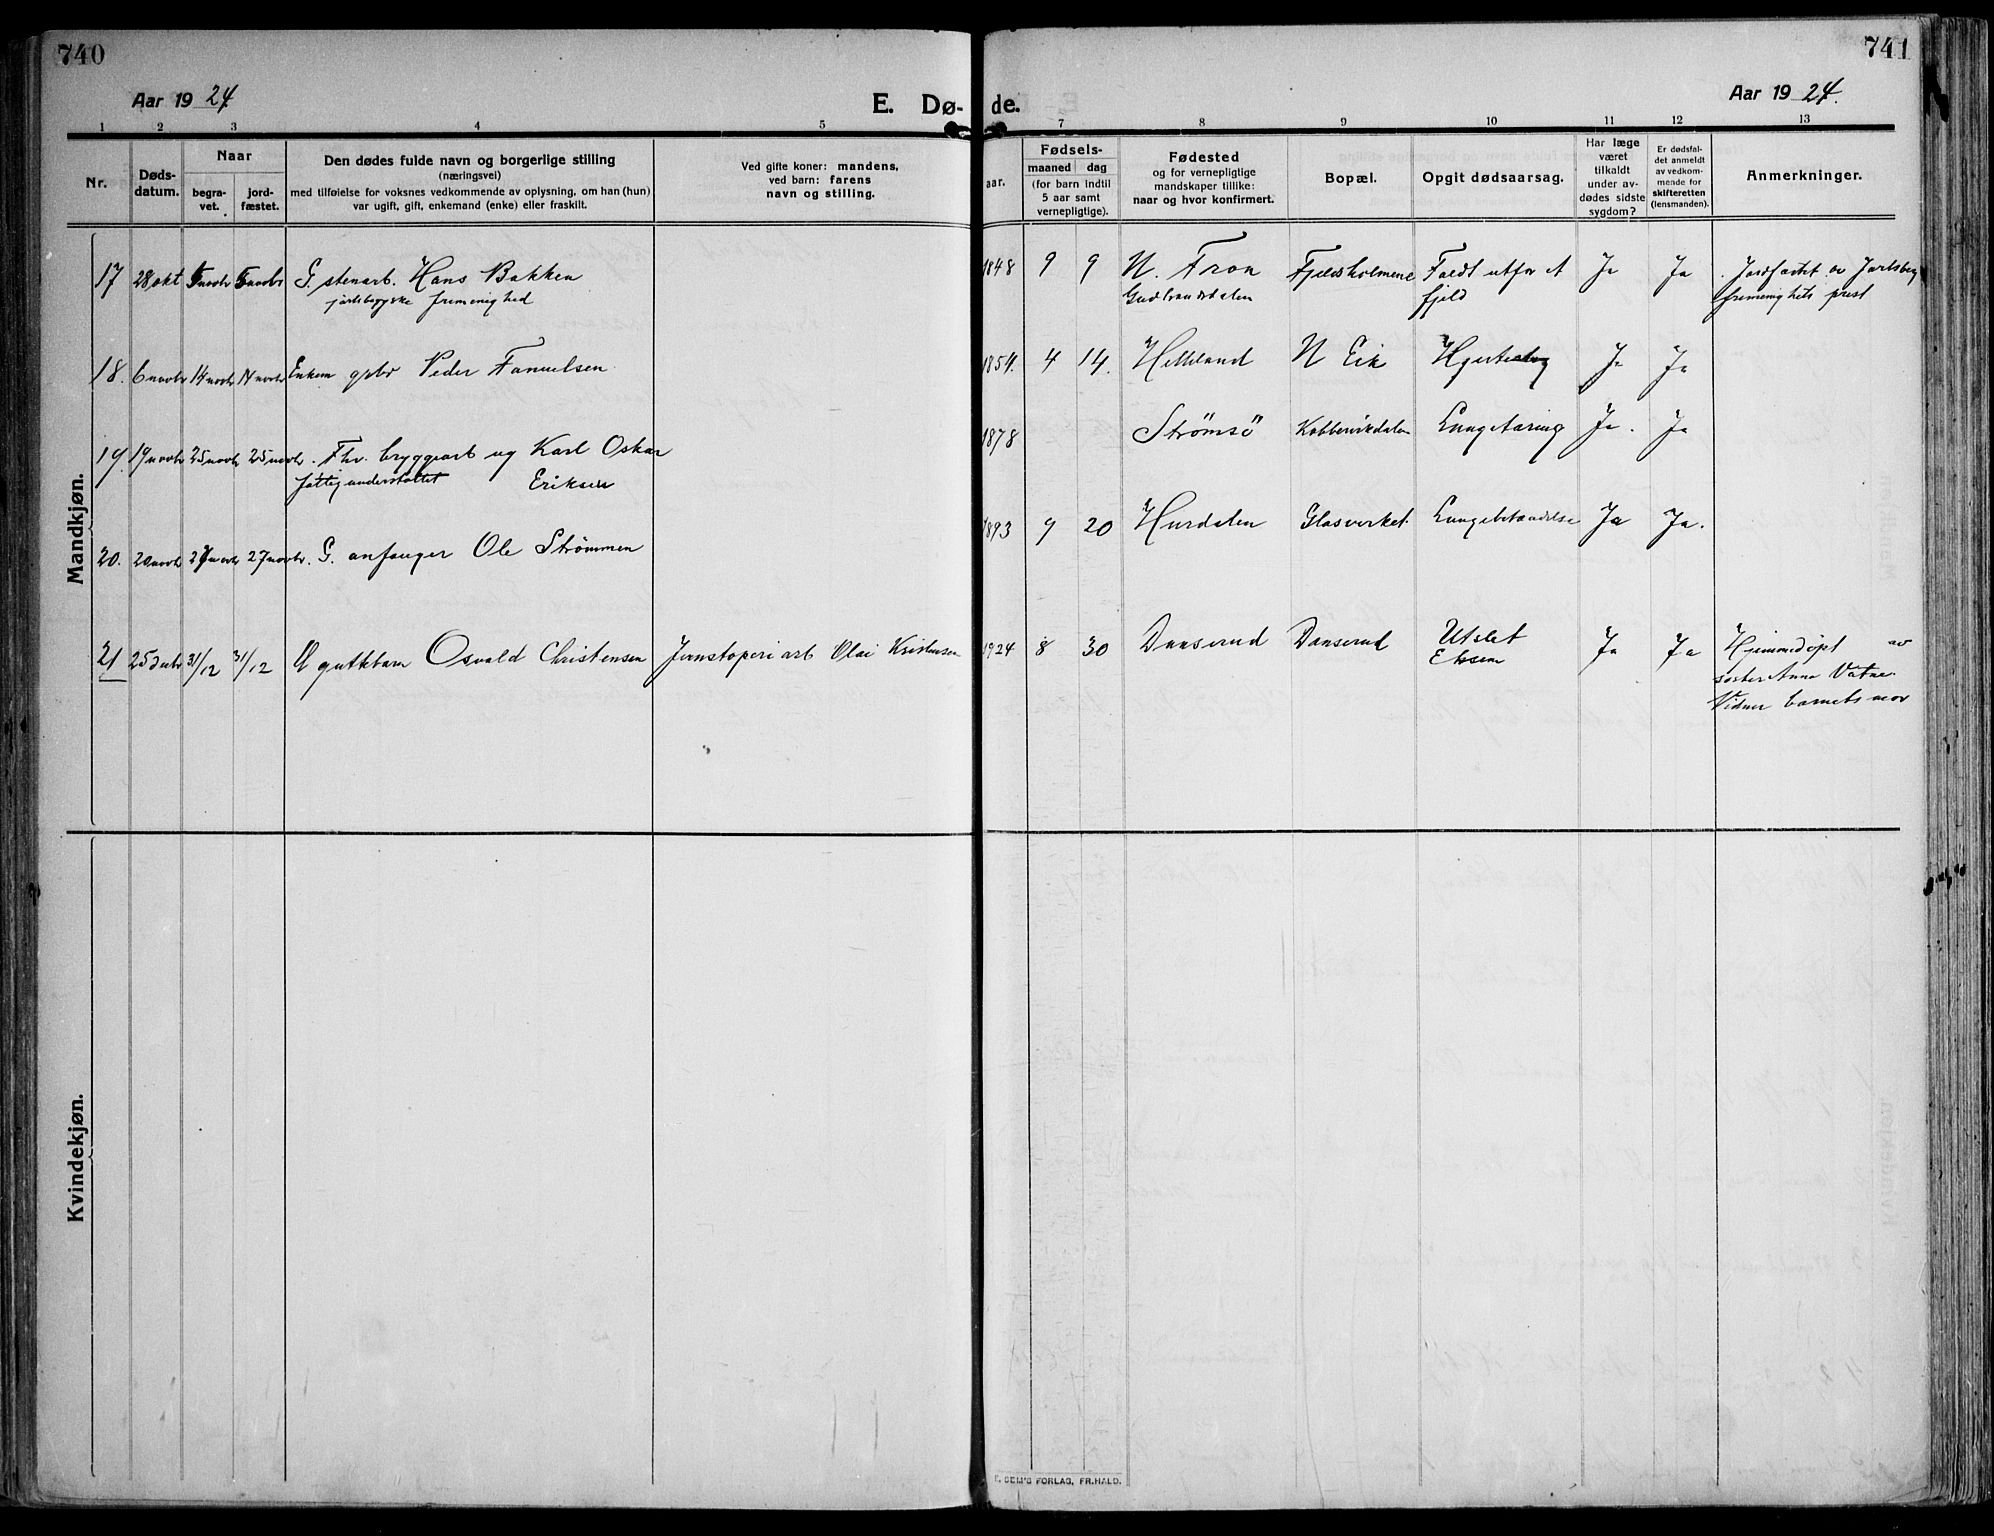 740
741
Aar 1924
E. Dø-
de.
Aar 1924.
1 2 3 4 5 7 8 9 10 11 12 13
Nr.
Døds-
datum.
Naar
begra-
vet.
jord-
fæstet.
Den dødes fulde navn og borgerlige stilling
(næringsvei)
med tilføielse for voksnes vedkommende av oplysning, om han (hun)
var ugift, gift, enkemand (enke) eller fraskilt.
Ved gifte koner: mandens,
ved barn: farens
navn og stilling.
aar.
Fødsels-
maaned dag
(for barn indtil
5 aar samt
vernepligtige).
Fødested
og for vernepligtige
mandskaper tillike:
naar og hvor konfirmert.
Bopæl.
Opgit dødsaarsag.
Har læge
været
tilkaldt
under av-
dødes sidste
sygdom?
Er dødsfal-
det anmeldt
av vedkom-
mende for
skifteretten
(lensmanden).
Anmerkninger.
Mandkjøn.
17 28 okt 5 novbr 5 novbr G. stenarb. Hans Bakken 1848 9 9 N. Fron Fjeldsholmene Faldt utfor et Ja Ja Jordfæstet av Jarlsberg
frimenighed Gudbrandsdalen fjeld frimenighets prest
18. 6 novbr 14 novbr 14 novbr Enkem grbr Peder Fanuelsen 1854. 4 14. Helleland N Eik Ja Ja
19. 19 novbr 25 novbr 25 novbr. Fhv. bryggearb ug Karl Oskar 1878 Strømsö Kobbervikdalen Lungetæring Ja. Ja
fattigunderstøttet Eriksen
20. 20 novbr 27 novbr 27 novbr. G. anfanger Ole Strømmen 1893 9 20 Hurdalen Glasverket Lungebetændelse Ja Ja.
21 25 31/12 31/12 guttbarn Osvald Christensen Jernstøperiarb Olai Kristensen 1924 8 30 Danserud Danserud Utslet Ja Ja Hjemmedöpt av
Eksem søster Anna Vatne.
barnets mor
Kvindekjøn.
E. SEM'S FORLAG, FR.HALD.